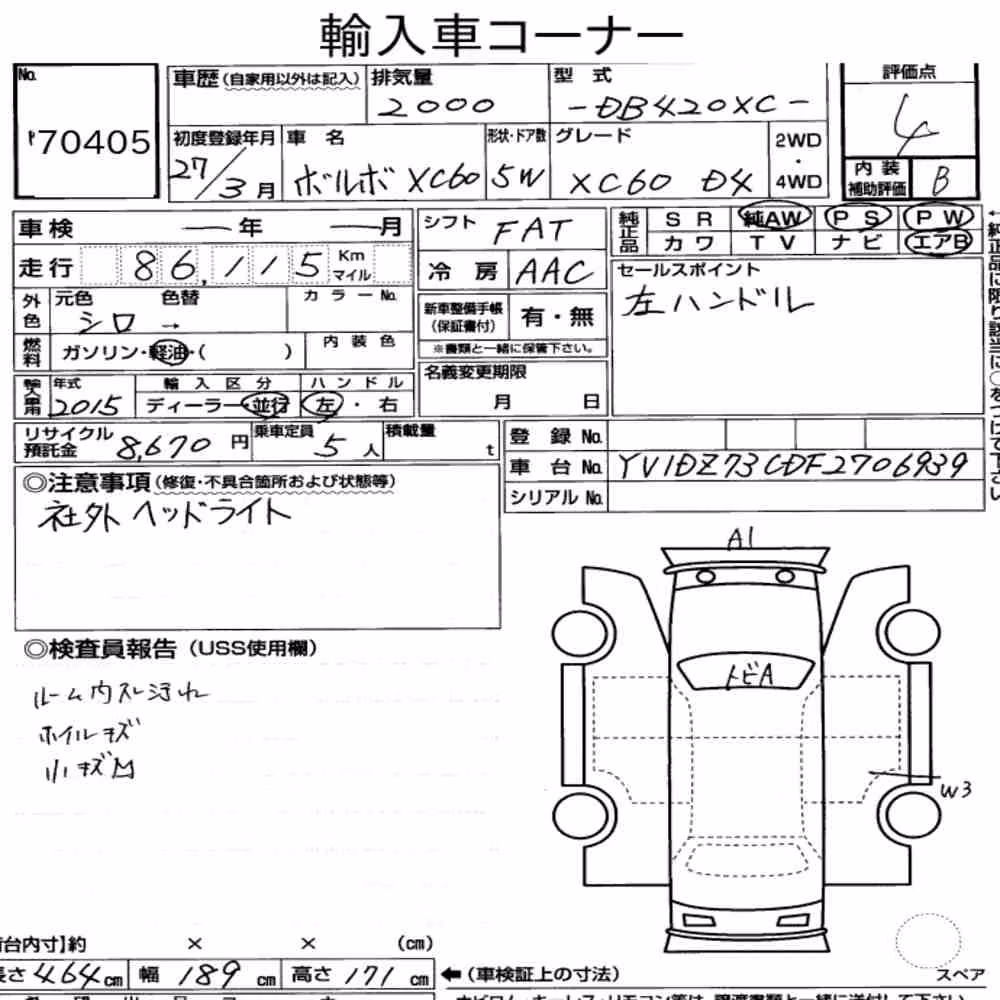 輸入車コーナー
No.
P70405
車歴(自家用以外は記入)
排気量
2000
型 式
-DB420XC-
評価点
4
初度登録年月
27/3月
車 名
ボルボ XC60
形状・ドア数
5W
グレード
XC60 D4
2WD
・
4WD
内 装
補助評価
B
車検 ―年 ―月
シフト
FAT
純正品
SR 純AW PS PW
カワ TV ナビ エアB
走行 86,115 Km
マイル
冷 房
AAC
セールスポイント
左ハンドル
外色
元色 色替
シロ →
カラーNo.
新車整備手帳
(保証書付)
有・無
※書類と一緒に保管下さい。
燃料
ガソリン・軽油・( )
内装色
名義変更期限
月 日
輸入車用
年式
2015
輸入区分
ディーラー・並行
ハンドル
左・右
リサイクル
預託金
8,670 円
乗車定員
5人
積載量
t
登 録 No.
車 台 No.
YV1DZ73CDF2706939
シリアル No.
◎注意事項(修復・不具合箇所および状態等)
社外ヘッドライト
A1
トビA
W3
◎検査員報告(USS使用欄)
ルーム内スレ汚れ
ホイルキズ
小キズ凹
台内寸】約 × × (cm)
長さ 464cm 幅 189cm 高さ 171cm
←(車検証上の寸法)
スペア